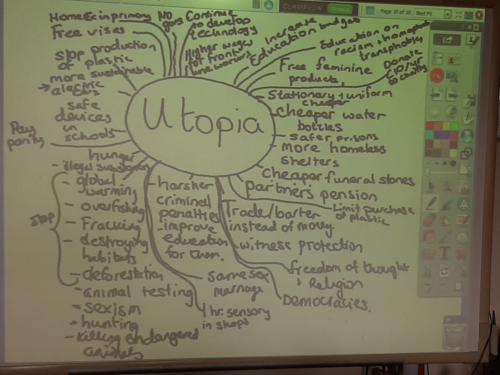 Home Ec in primary
Free visas
No
gas
Continue
to develop
technology
Higher wages
for front
line workers
Increase
Education budgets
Education on
racism + homophobia
transphobia
Free feminine
products
Donate
to
Stationary + uniform
cheaper
Cheaper water
bottles
safer prisons
more homeless
shelters
Cheaper funeral stones
partners pension
Limit purchase
of plastic
Stop production
of plastic
more sustainable
→ electric
safe
devices
in
schools
Pay
parity
Utopia
hunger
- illegal
Stop
- global
warming
- overfishing
- Fracking
- destroying
habitats
- deforestation
- animal testing
- sexism
- hunting
- killing endangered
animals
harsher
criminal
penalties
improve
education
for them.
Trade/barter
instead of money
witness protection
freedom of thought
+ Religion
Democracies.
same sex
marriage
1 hr sensory
in shops